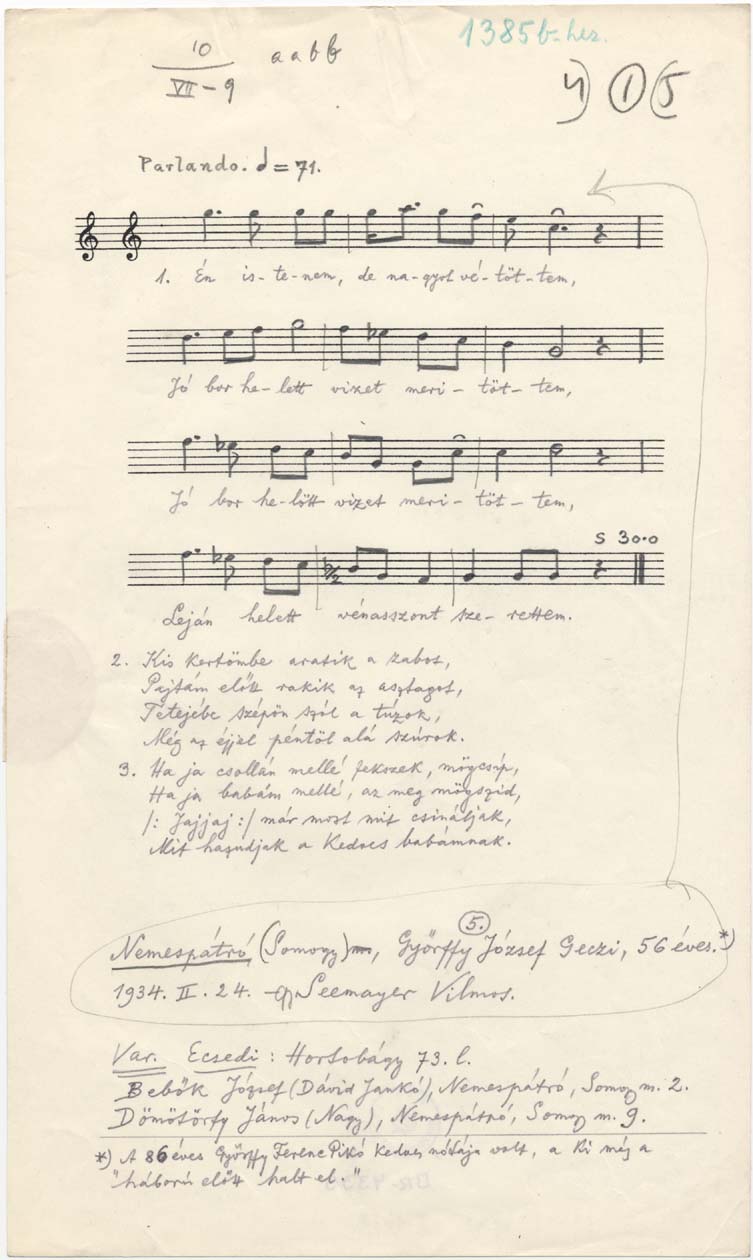 1385b-hez.
10
VII-9
a a b b
4) 1 (5
Parlando. = 71.
1. Én is-te-nem, de na-gyot vé-töt-tem,
Jó bor he-lett vizet meri-töt-tem,
Jó bor he-lött vizet meri-töt-tem,
S 30.0
b/2
Leján helett vénasszont sze-rettem.
2. Kis kertömbe aratik a zabot,
Pajtám előtt rakik az asztagot,
Tetejébe szépön szól a túzok,
Még az éjjel péntöl alá szúrok.
3. Ha ja csollán mellé fekszek, mögcsip,
Ha ja babám mellé, az meg mögszid,
/: Jajjaj :/ már most mit csináljak,
Mit hazudjak a Kedves babámnak.
5.
Nemespátró (Somogy), Győrffy József Geczi, 56 éves.*)
1934. II. 24. Seemayer Vilmos.
Var. Ecsedi: Hortobágy 73. l.
Bebők József (Dávid Jankó), Nemespátró, Somogy m. 2.
Dömötörfy János (Nagy), Nemespátró, Somogy m. 9.
*) A 86 éves Győrffy Ferenc Pikó Kedves nótája volt, a Ki még a
"háború előtt halt el."